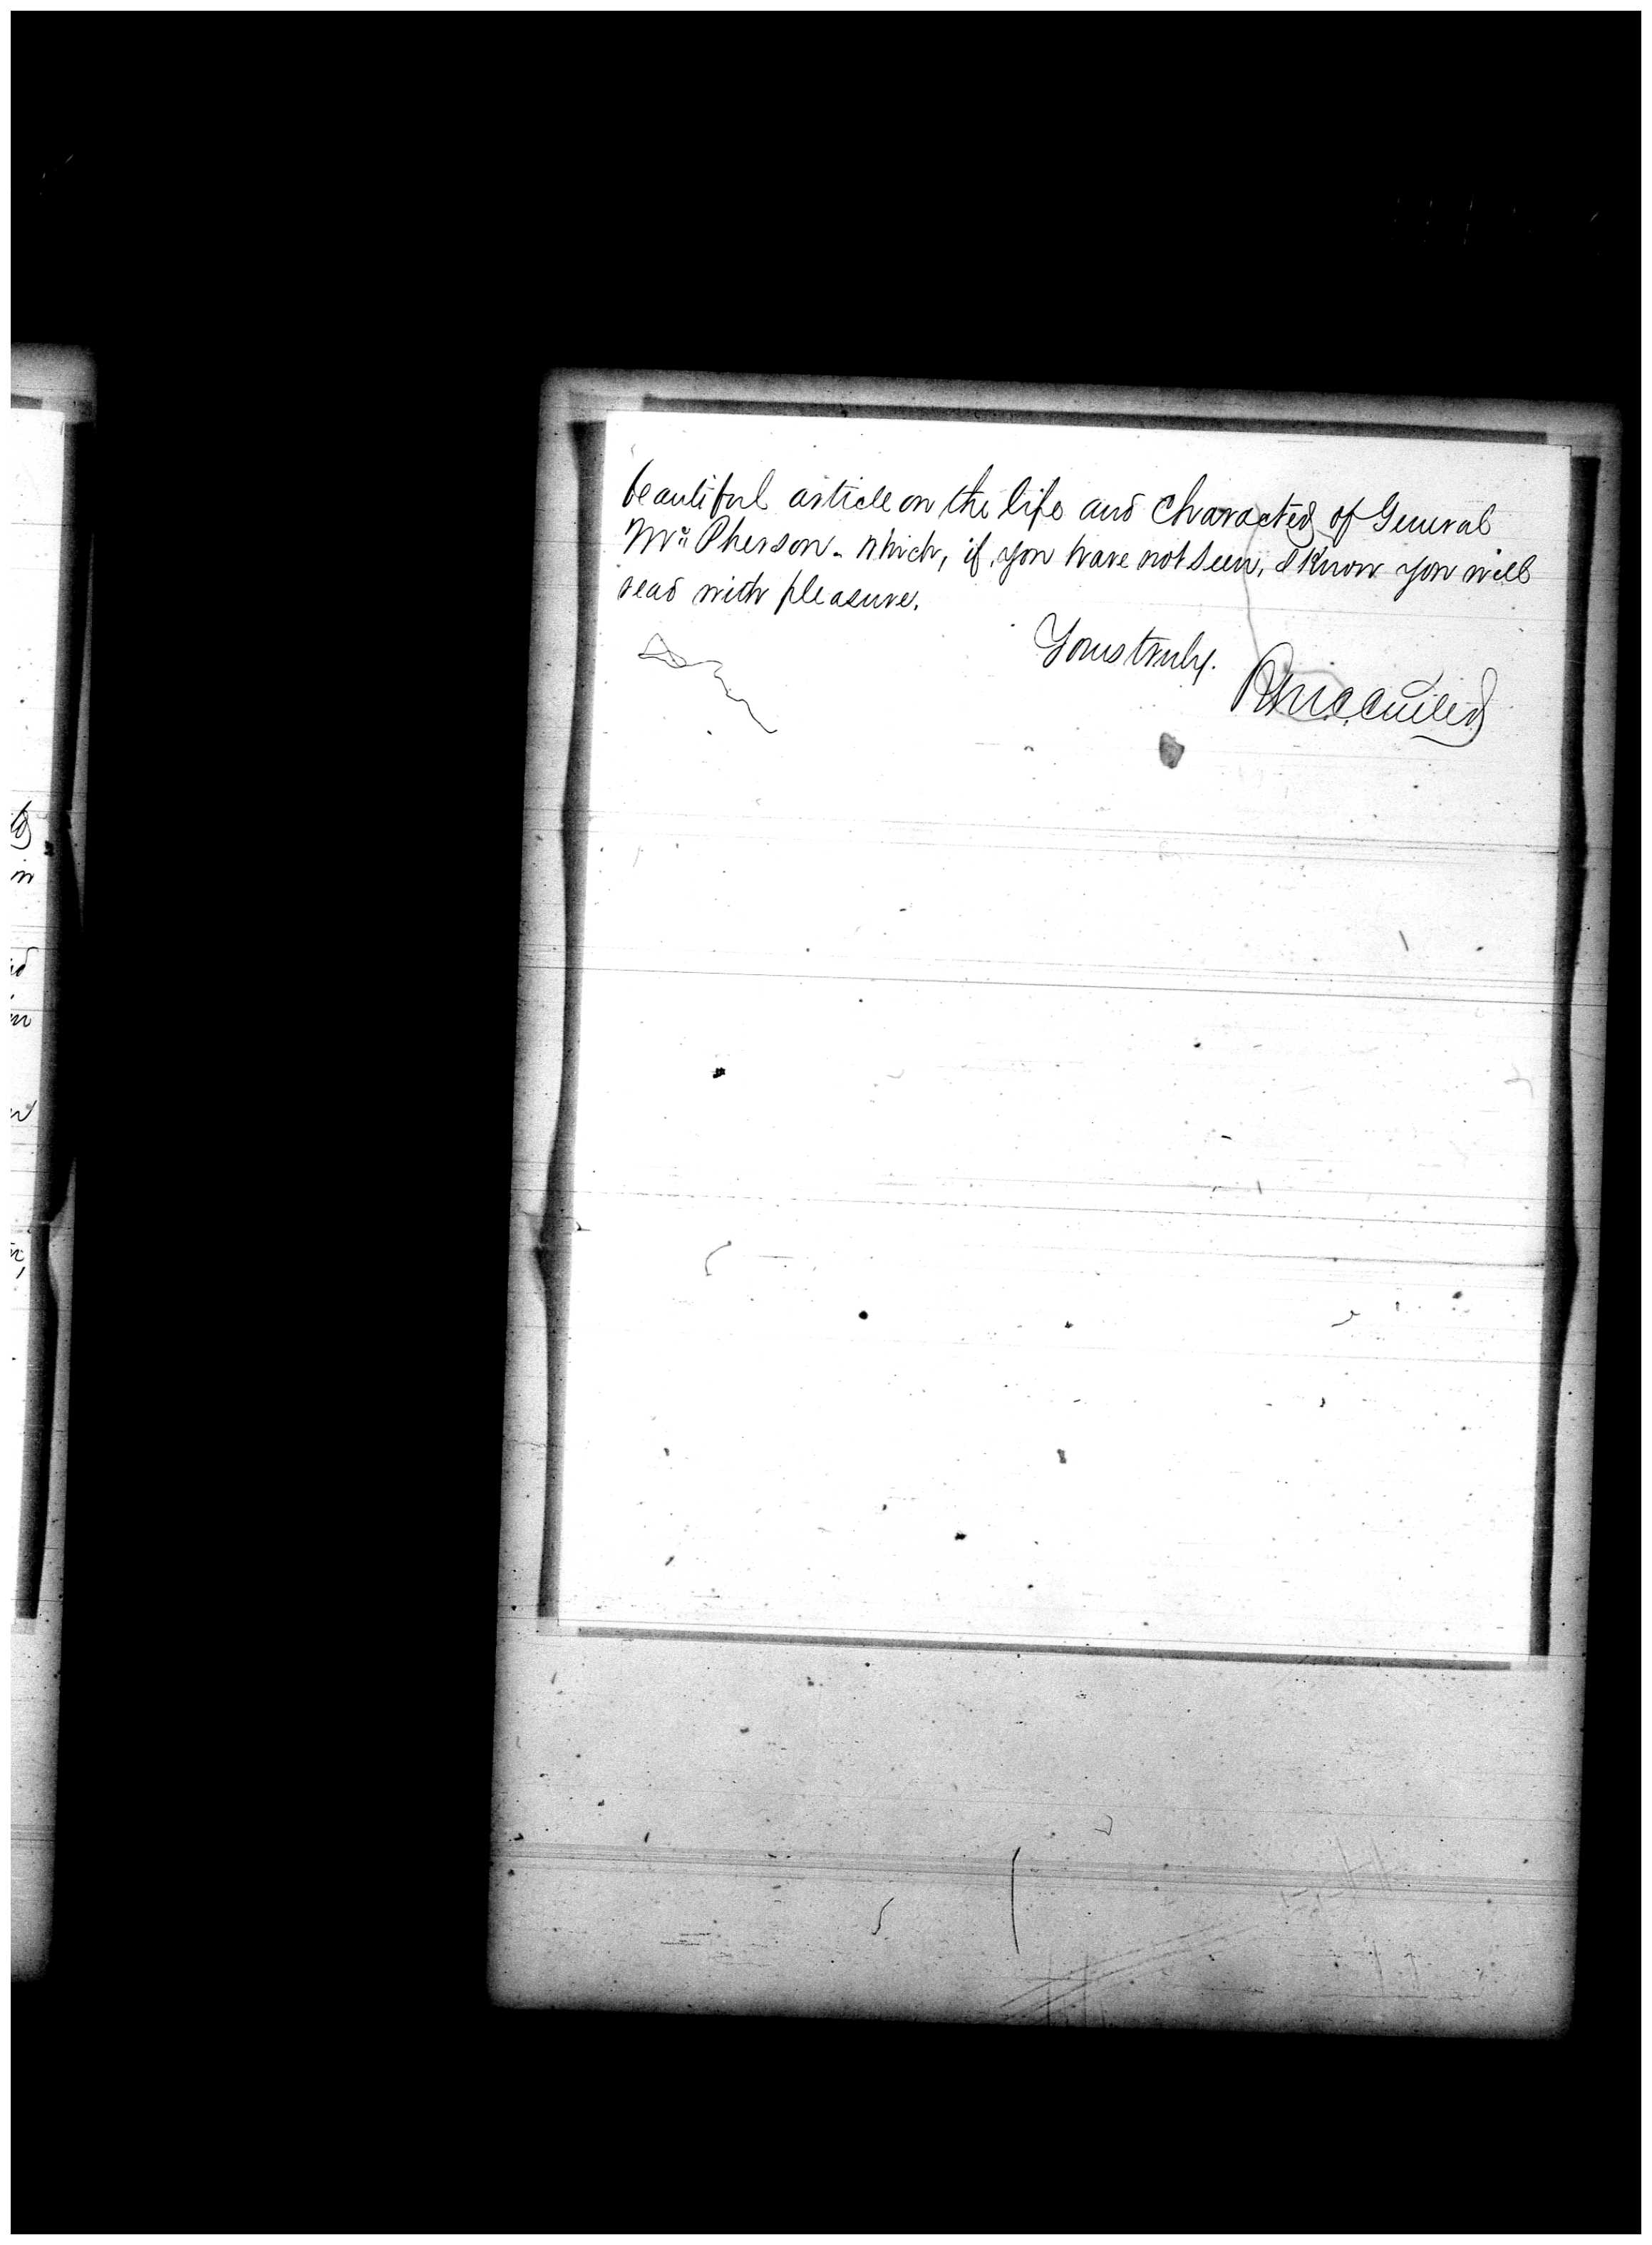 beautiful article on the life and character of General
McPherson - which, if you have not seen, I know you will
read with pleasure.
Yours truly.
in